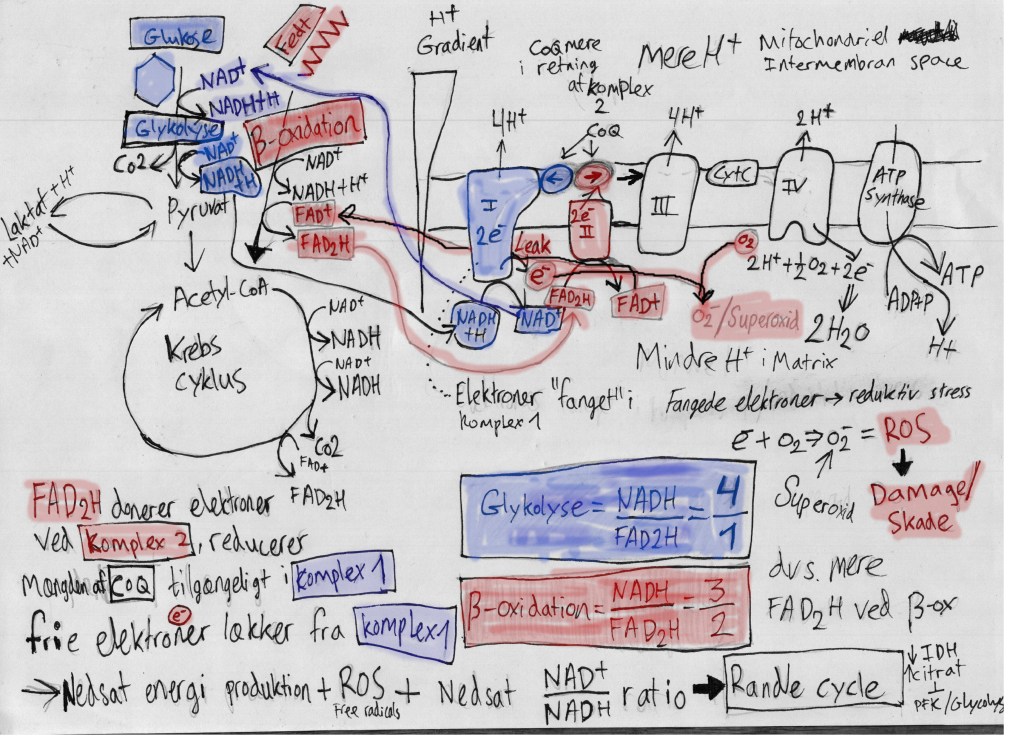 Glukose
Fedt
NAD⁺
NADH+H
Glykolyse
β-oxidation
CO2
NAD⁺
NADH
+H
NAD⁺
NADH+H⁺
FAD⁺
FAD2H
Laktat + H⁺
+NAD⁺
Pyruvat
Acetyl-CoA
Krebs
cyklus
NAD⁺
NADH
NAD⁺
NADH
CO2
FAD⁺
FAD2H
H⁺
Gradient
CoQ mere
i retning
af komplex
2
Mere H⁺
Mitochondriel
Intermembran space
4H⁺
CoQ
4H⁺
2H⁺
I
2e⁻
2e⁻
II
III
CytC
IV
ATP
Synthase
Leak
e⁻
O2
2H⁺+½O2+2e⁻
2H2O
ATP
ADP+P
H+
NADH
+H
NAD⁺
FAD2H
FAD⁺
O2⁻/Superoxid
Mindre H⁺ i Matrix
Elektroner "fanget" i
komplex 1
Fangede elektroner → reduktiv stress
e⁻ + O2 ⇒ O2⁻ = ROS
Superoxid
Damage/
Skade
FAD2H donerer elektroner
ved komplex 2, reducerer
Mængden af CoQ tilgængeligt i komplex 1
e⁻
frie elektroner lækker fra komplex 1
Glykolyse = NADH/FAD2H = 4/1
β-oxidation = NADH/FAD2H = 3/2
dvs. mere
FAD2H ved β-ox
→ Nedsat energi produktion + ROS + Nedsat NAD⁺/NADH ratio → Randle cycle
Free radicals
↓ IDH
↑ citrat
⊥
PFK/Glycolys